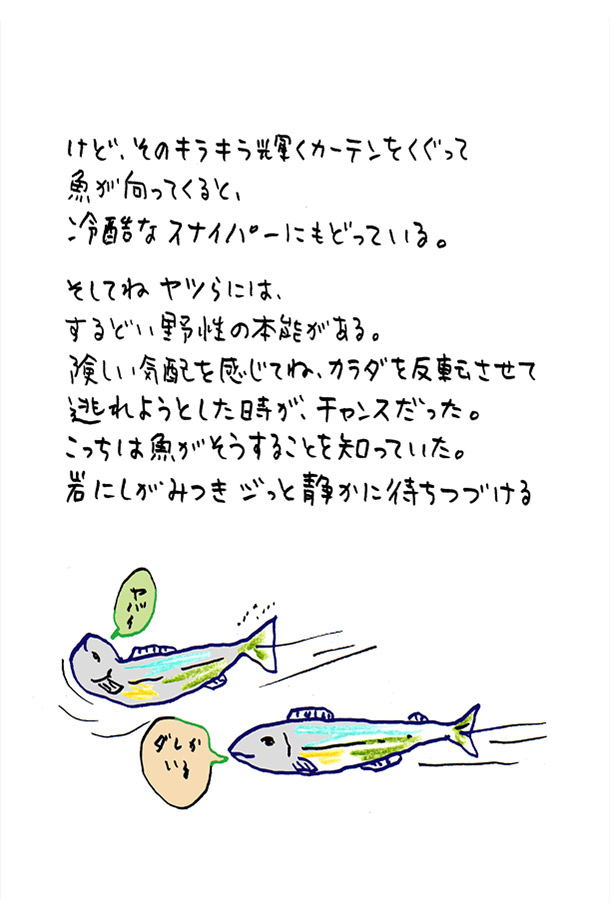 けど、そのキラキラ輝くカーテンをくぐって
魚が向ってくると、
冷酷なスナイパーにもどっている。
そしてね ヤツらには、
するどい野性の本能がある。
険しい気配を感じてね、カラダを反転させて
逃れようとした時が、チャンスだった。
こっちは魚がそうすることを知っていた。
岩にしがみつき ジっと静かに待ちつづける
ヤバイ
ダレか
いる